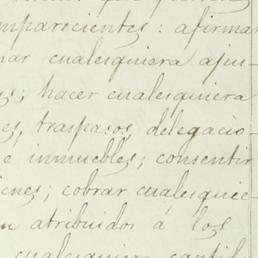 mparecientes: afirmar
nar cualesquiera ajus-
es; hacer cualesquiera
es, traspasos, delegacio-
e inmuebles; consentir
ones; cobrar cualesquie-
n atribuidos á los
cualesquiera